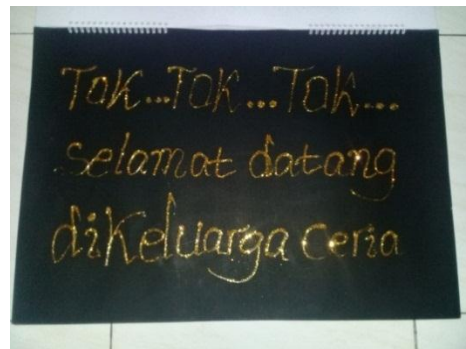 Tok...Tok...Tok...
Selamat datang
dikeluarga ceria